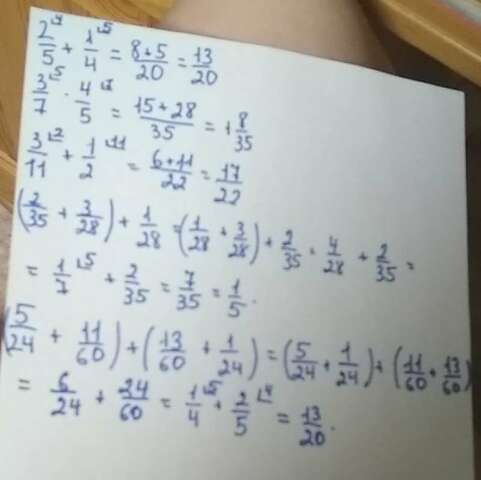 2/5 ⌊4 + 1/4 ⌊5 = 8+5/20 = 13/20
3/7 ⌊5 · 4/5 ⌊7 = 15+28/35 = 1 8/35
3/11 ⌊2 + 1/2 ⌊11 = 6+11/22 = 17/22
(2/35 + 3/28) + 1/28 = (1/28 + 3/28) + 2/35 = 4/28 + 2/35 =
= 1/7 ⌊5 + 2/35 = 7/35 = 1/5.
(5/24 + 11/60) + (13/60 + 1/24) = (5/24 + 1/24) + (11/60 + 13/60)
= 6/24 + 24/60 = 1/4 ⌊5 + 2/5 ⌊4 = 13/20.